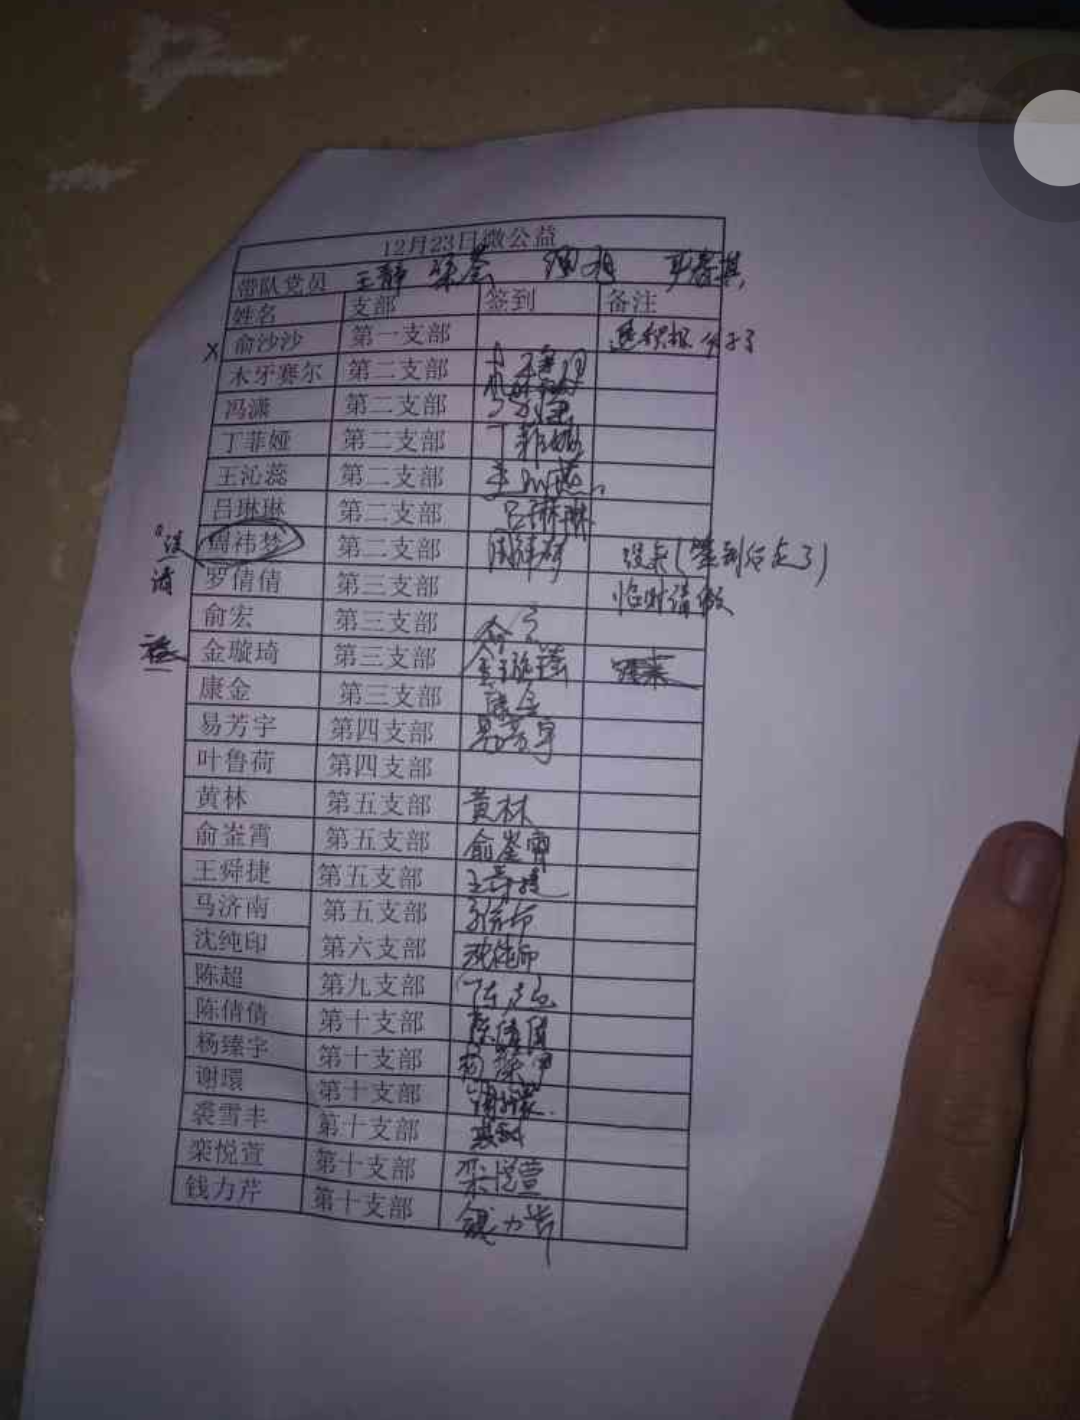 12月23日微公益
带队党员 王静
姓名 支部 签到 备注
x 俞沙沙 第一支部 积极分子了
木牙赛尔 第二支部
冯潇 第二支部
丁菲娅 第二支部 丁菲娅
王沁蕊 第二支部 王沁蕊
吕琳琳 第二支部 吕琳琳
周祎梦 第二支部 周祎梦 没来(签到后走了)
罗倩倩 第三支部 临时请假
俞宏 第三支部 俞宏
金璇琦 第三支部 金璇琦
康金 第三支部 康金
易芳宇 第四支部 易芳宇
叶鲁荷 第四支部
黄林 第五支部 黄林
俞崟霄 第五支部 俞崟霄
王舜捷 第五支部 王舜捷
马济南 第五支部
沈纯印 第六支部 沈纯印
陈超 第九支部 陈超
陈倩倩 第十支部 陈倩倩
杨臻宇 第十支部 杨臻宇
谢環 第十支部
裘雪丰 第十支部
栾悦萱 第十支部 栾悦萱
钱力芹 第十支部 钱力芹